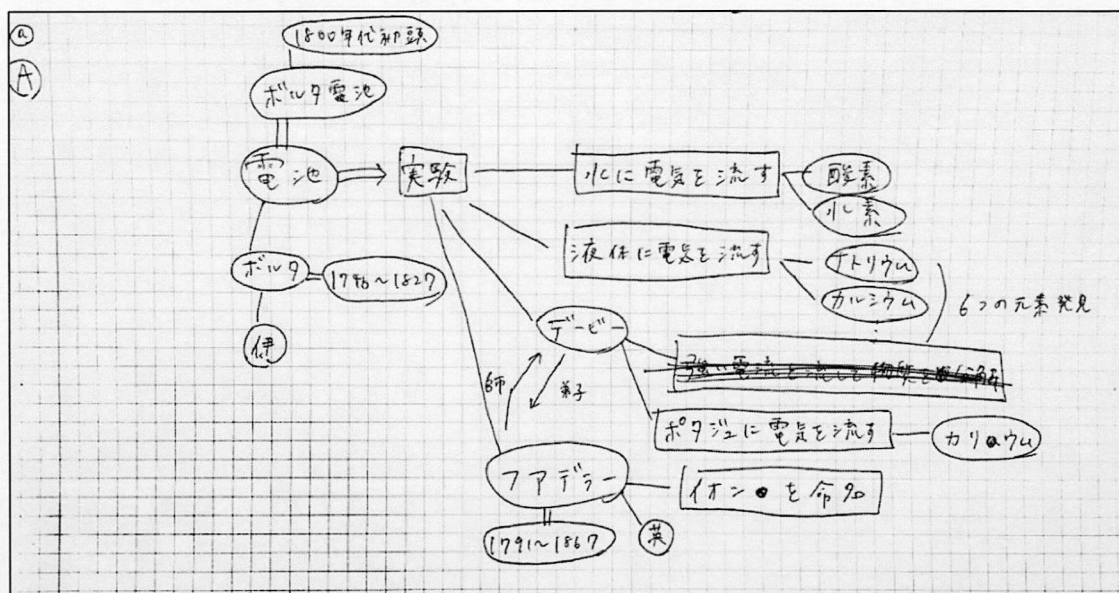 a
A
1800年代初頭
ボルタ電池
電池
実験
水に電気を流す
酸素
水素
液体に電気を流す
ナトリウム
カルシウム
6つの元素発見
ボルタ
1745〜1827
伊
デービー
師
弟子
ポタジュに電気を流す
カリウム
ファデラー
イオンを命名
1791〜1867
英